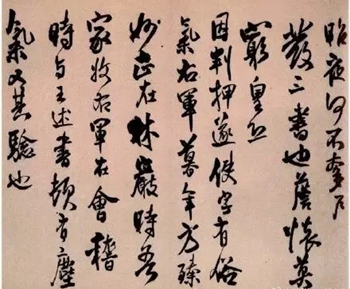 昨夜不
三書也懷莫
窮皇恐
因判押遂使字有俗
氣右軍暮年方臻
妙正在林巖時吾
家收右軍在會稽
時與王述書頓有塵
氣又其驗也